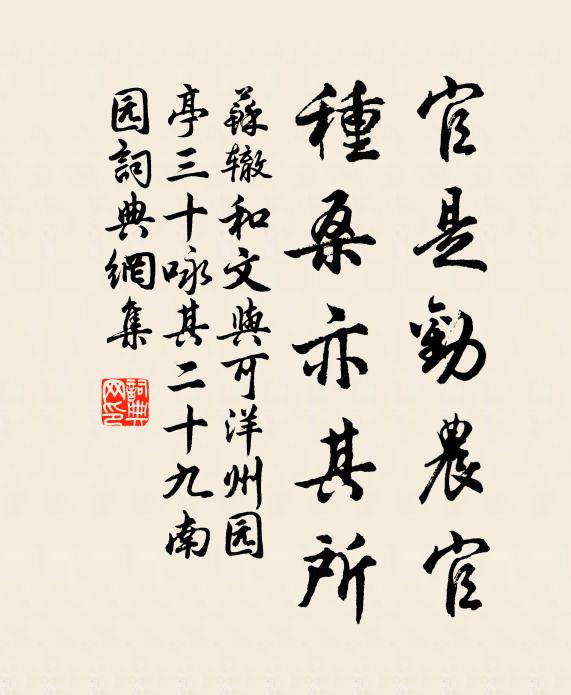 官是勸農官
種桑亦其所
蘇辙和文與可洋州园
亭三十咏其二十九南
园詞典網集
詞典
网印